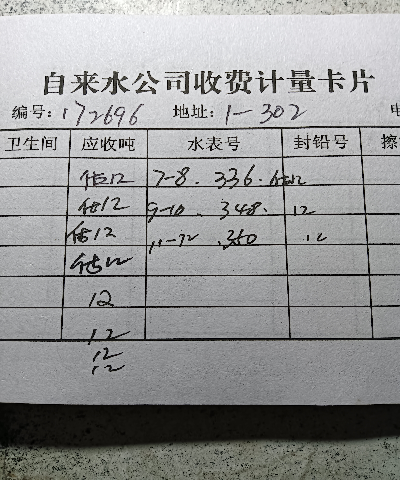 自来水公司收费计量卡片
编号: 172696 地址: 1-302 电
卫生间 应收吨 水表号 封铅号 擦
估12 7-8. 336. 估12
估12 9-10. 348. 12
估12 11-12 .360 12
估12
12
12
12
12